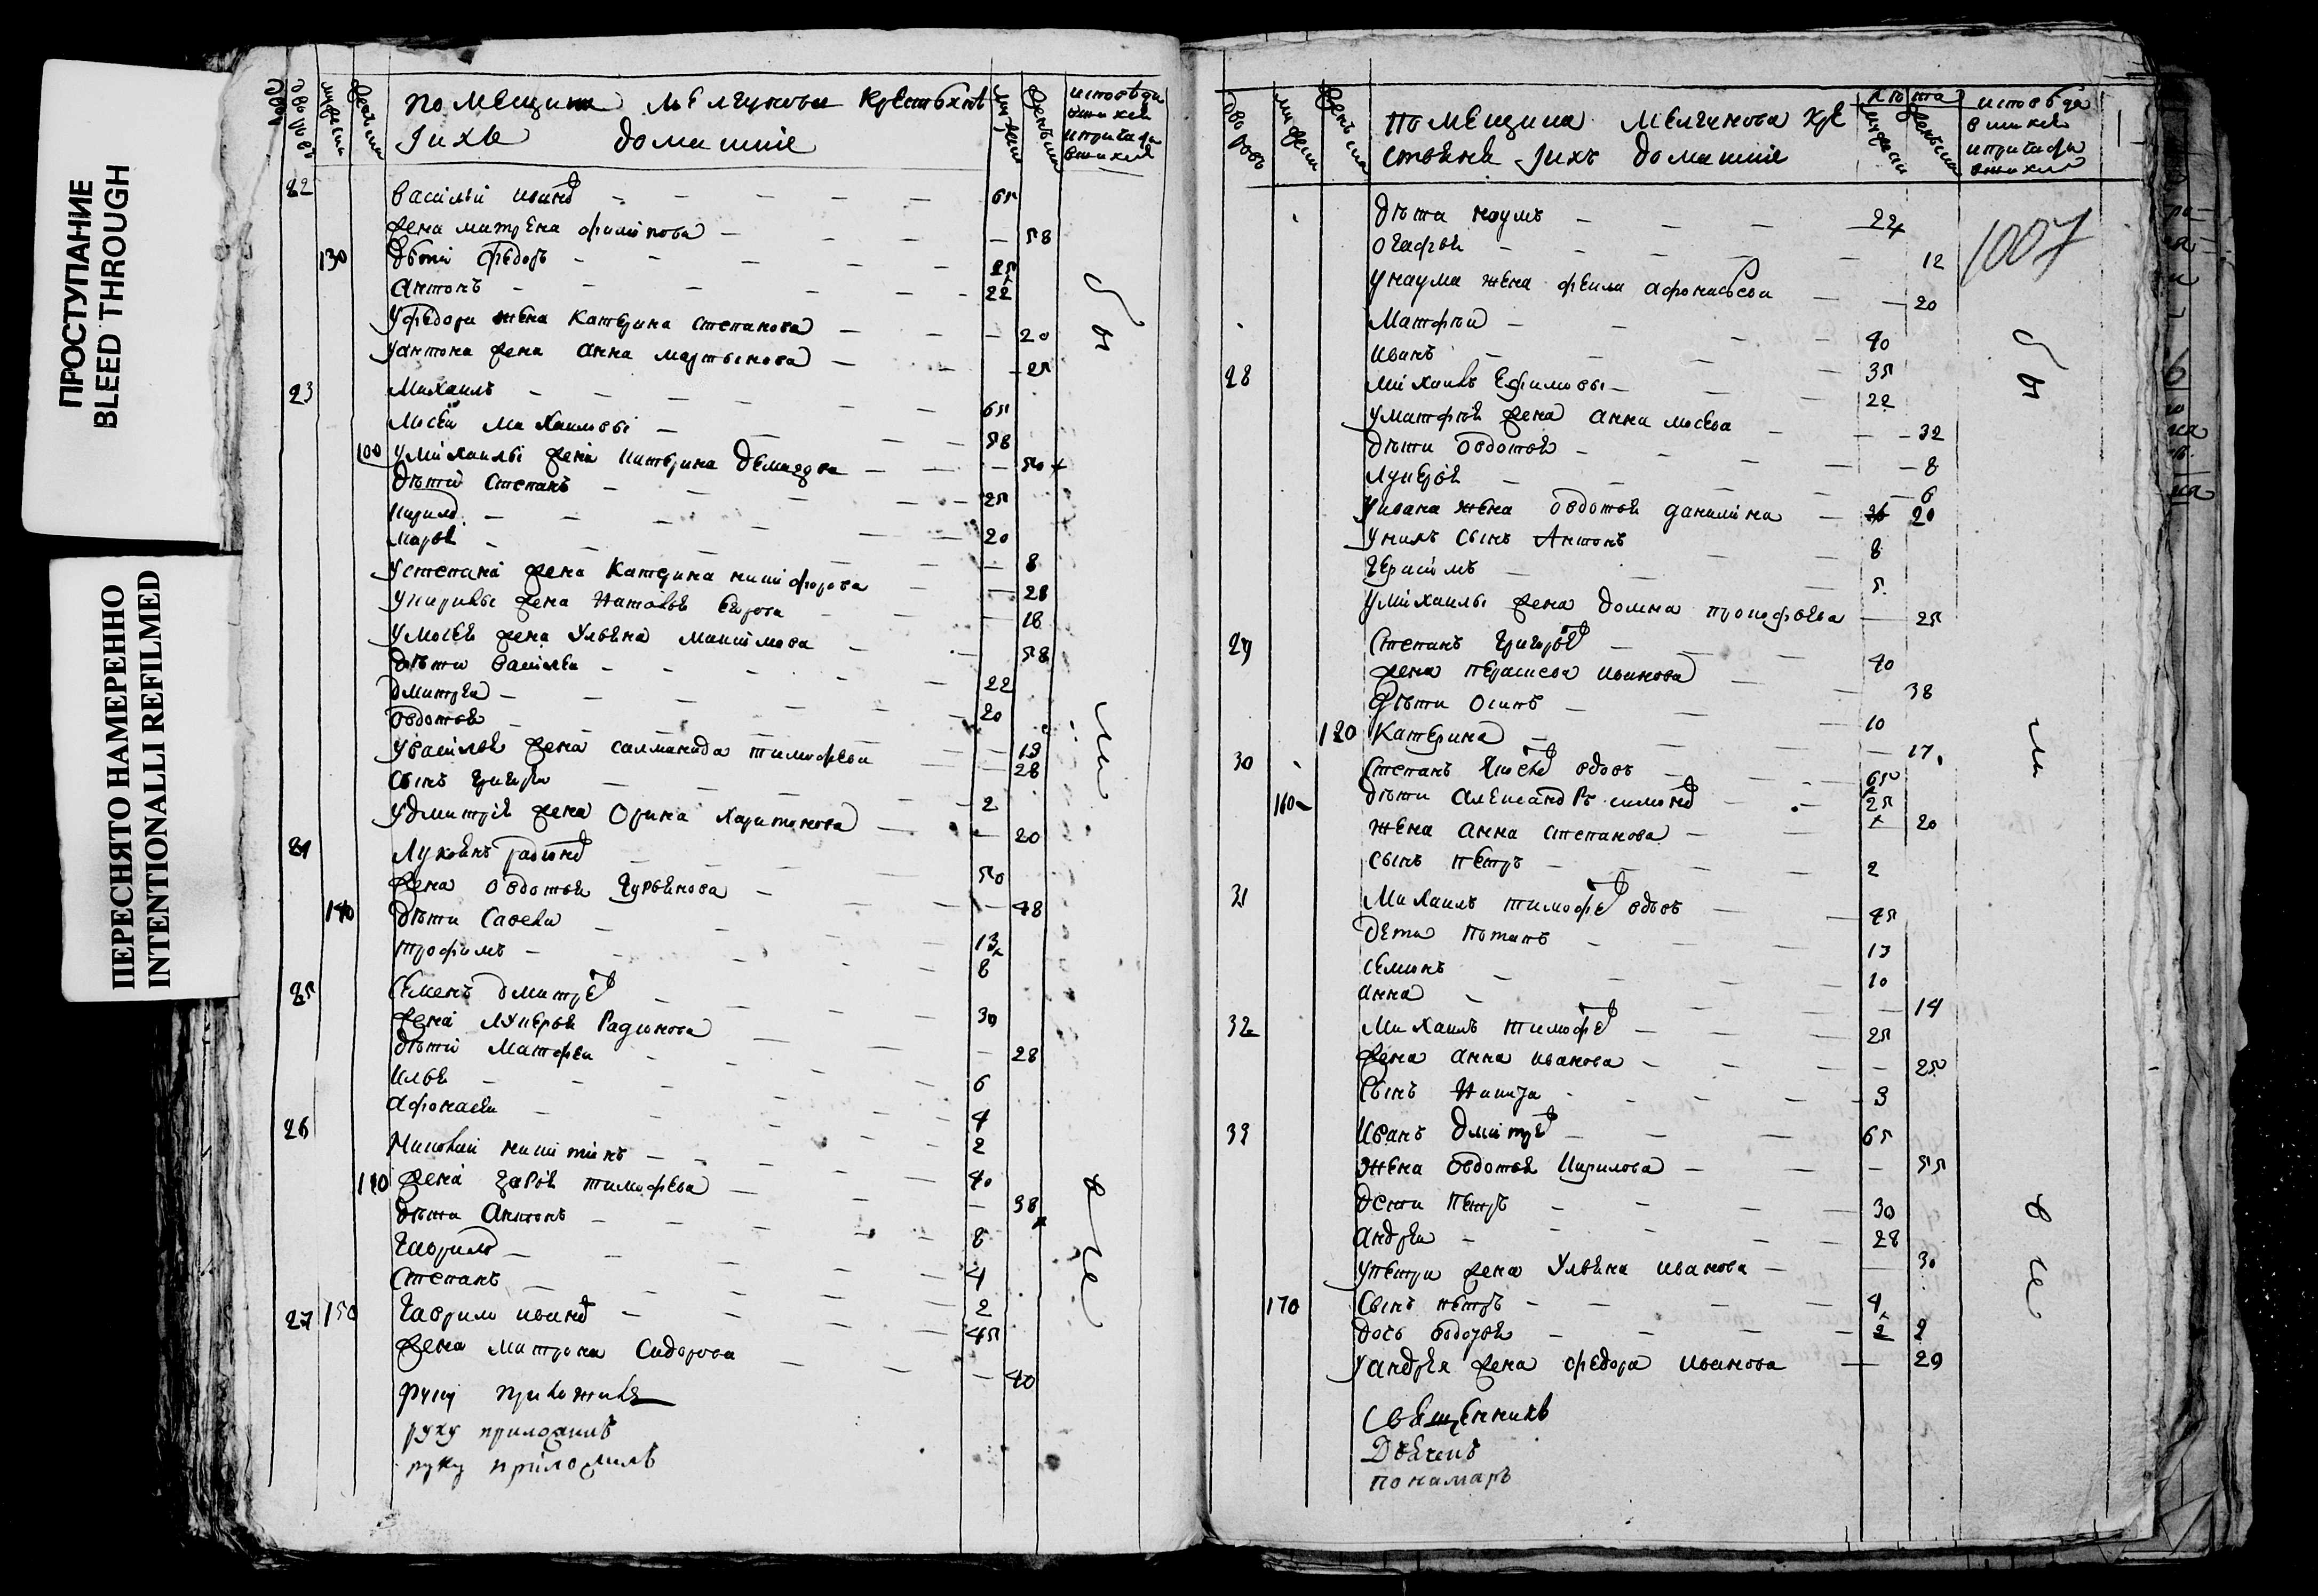 ПРОСТУПАНИЕ
BLEED THROUGH
ПЕРЕСНЯТО НАМЕРЕННО
INTENTIONALLI REFILMED
помещика мелгунова крестьяне
ихъ домашние
82 василей иванов 65
жена матрена филипова 58
130 дети федоръ 25
антонъ 22
у федора жена катерина степанова 20
у антона жена анна мартынова 25
23 михаилъ 65
мосеи михаиловы 58
100 у михаилы жена катерина 50
дети степанъ 25
кирило 20
марья 8
у степана жена катерина никифорова 28
у кирилы жена наталья 18
у мосея жена ульяна максимова 58
дети василеи 22
дмитреи 20
овдотья 13
у василья жена саламанида тимофеева 28
сынъ григореи 2
у дмитрея жена орина харитонова 20
24 лукьянъ радионов 50
жена овдотья гурьянова 48
140 дети савелеи 13
трофимъ 8
25 семенъ дмитре 30
жена лукерья радионова 28
дети матфеи 6
илья 4
афонасеи 2
26 никитинъ 40
110 жена дарья тимофеева 38
дети антонъ 8
гаврило 4
степанъ 2
27 150 гаврило иванов 45
жена матрона сидорова 40
руку приложилъ
руку приложилъ
руку приложилъ
помещика мелгунова кре
стьяне ихъ домашние
дети наумъ 22
огафья 12
1007
у наума жена фекла афонасьева 20
матфеи 40
иванъ 35
28 михаилъ ефимовы 22
у матфея жена анна мосеева 32
дети овдотья 8
лукерья 6
у ивана жена овдотья данилина 20
у нихъ сынъ антонъ 8
герасимъ 5
у михаилы жена домна прокофьева 25
29 степанъ григорье 40
жена парасковя иванова 38
дети осипъ 10
120 катерина 17
30 степанъ вдовъ 65
160 дети александръ 25
жена анна степанова 20
сынъ петръ 2
31 михаилъ тимофе вдовъ 45
дети потапъ 13
семионъ 10
анна 14
32 михаилъ тимофе 25
жена анна иванова 25
сынъ никита 3
33 иванъ дмитре 65
жена овдотья кирилова 55
дети петръ 30
андреи 28
у петра жена ульяна иванова 30
170 сынъ петръ 4
дочь 2
у андрея жена федора иванова 29
священникъ
дьячекъ
понамаръ